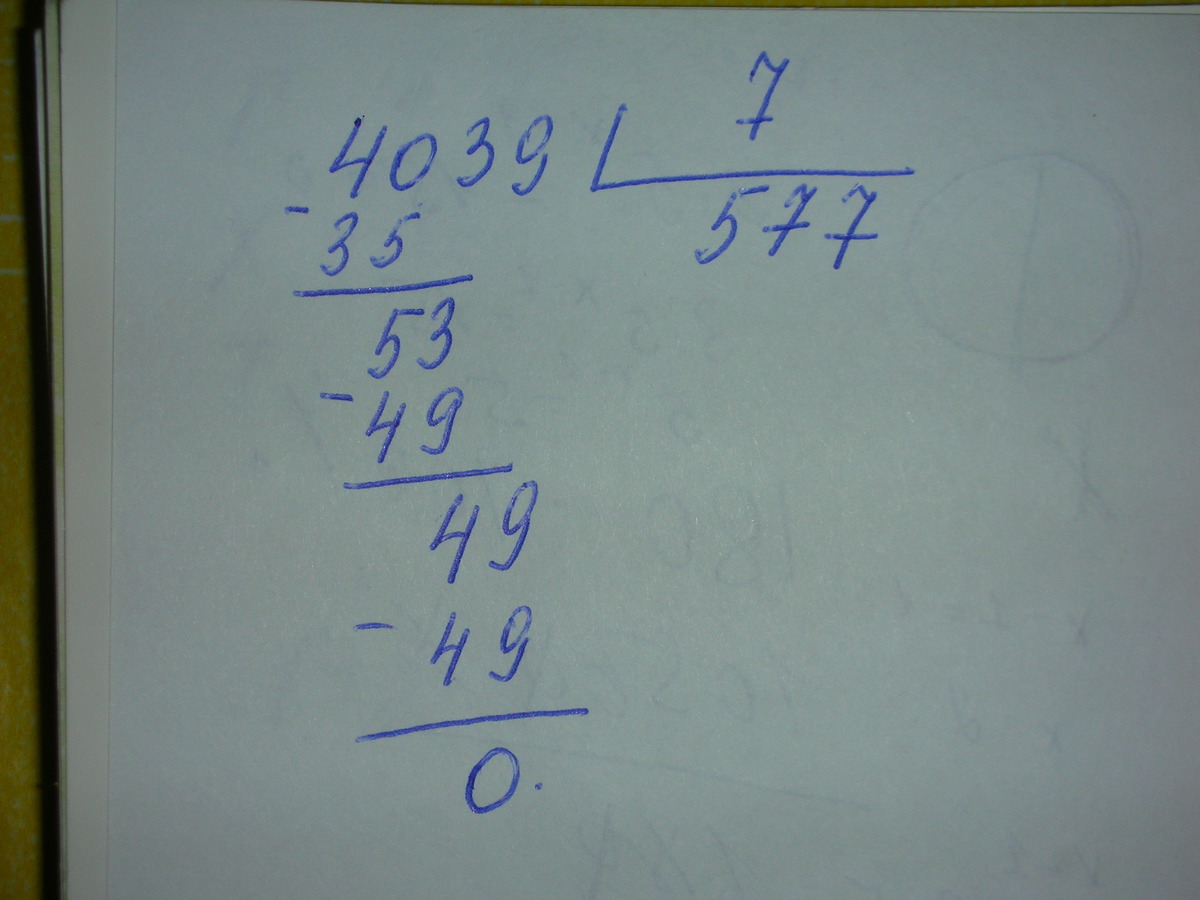 4039 7
- 35 577
53
- 49
49
- 49
0.